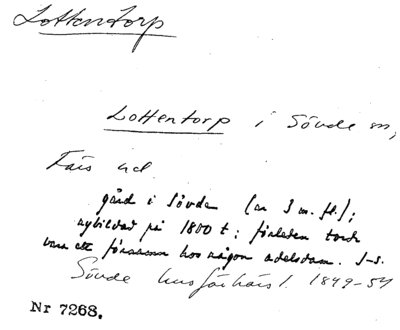 Lottentorp
Lottentorp i Sövde sn,
Färs hd
gård i Sövde (ca 3 m. fl.);
nybildad på 1800 t; förleden torde
vara ett förnamn hos någon adelsdam. J-s.
Sövde husförhörsl. 1849-54
Nr 7268.